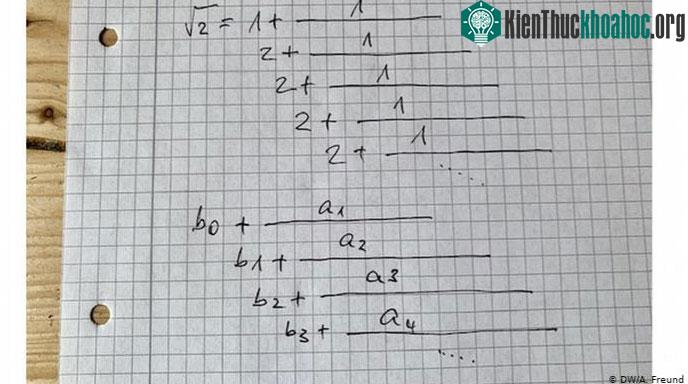 KienThuckhoahoc.org
√2 = 1 + 1
2 + 1
2 + 1
2 + 1
2 + 1
.....
b0 + a1
b1 + a2
b2 + a3
b3 + a4
....
© DW/A. Freund